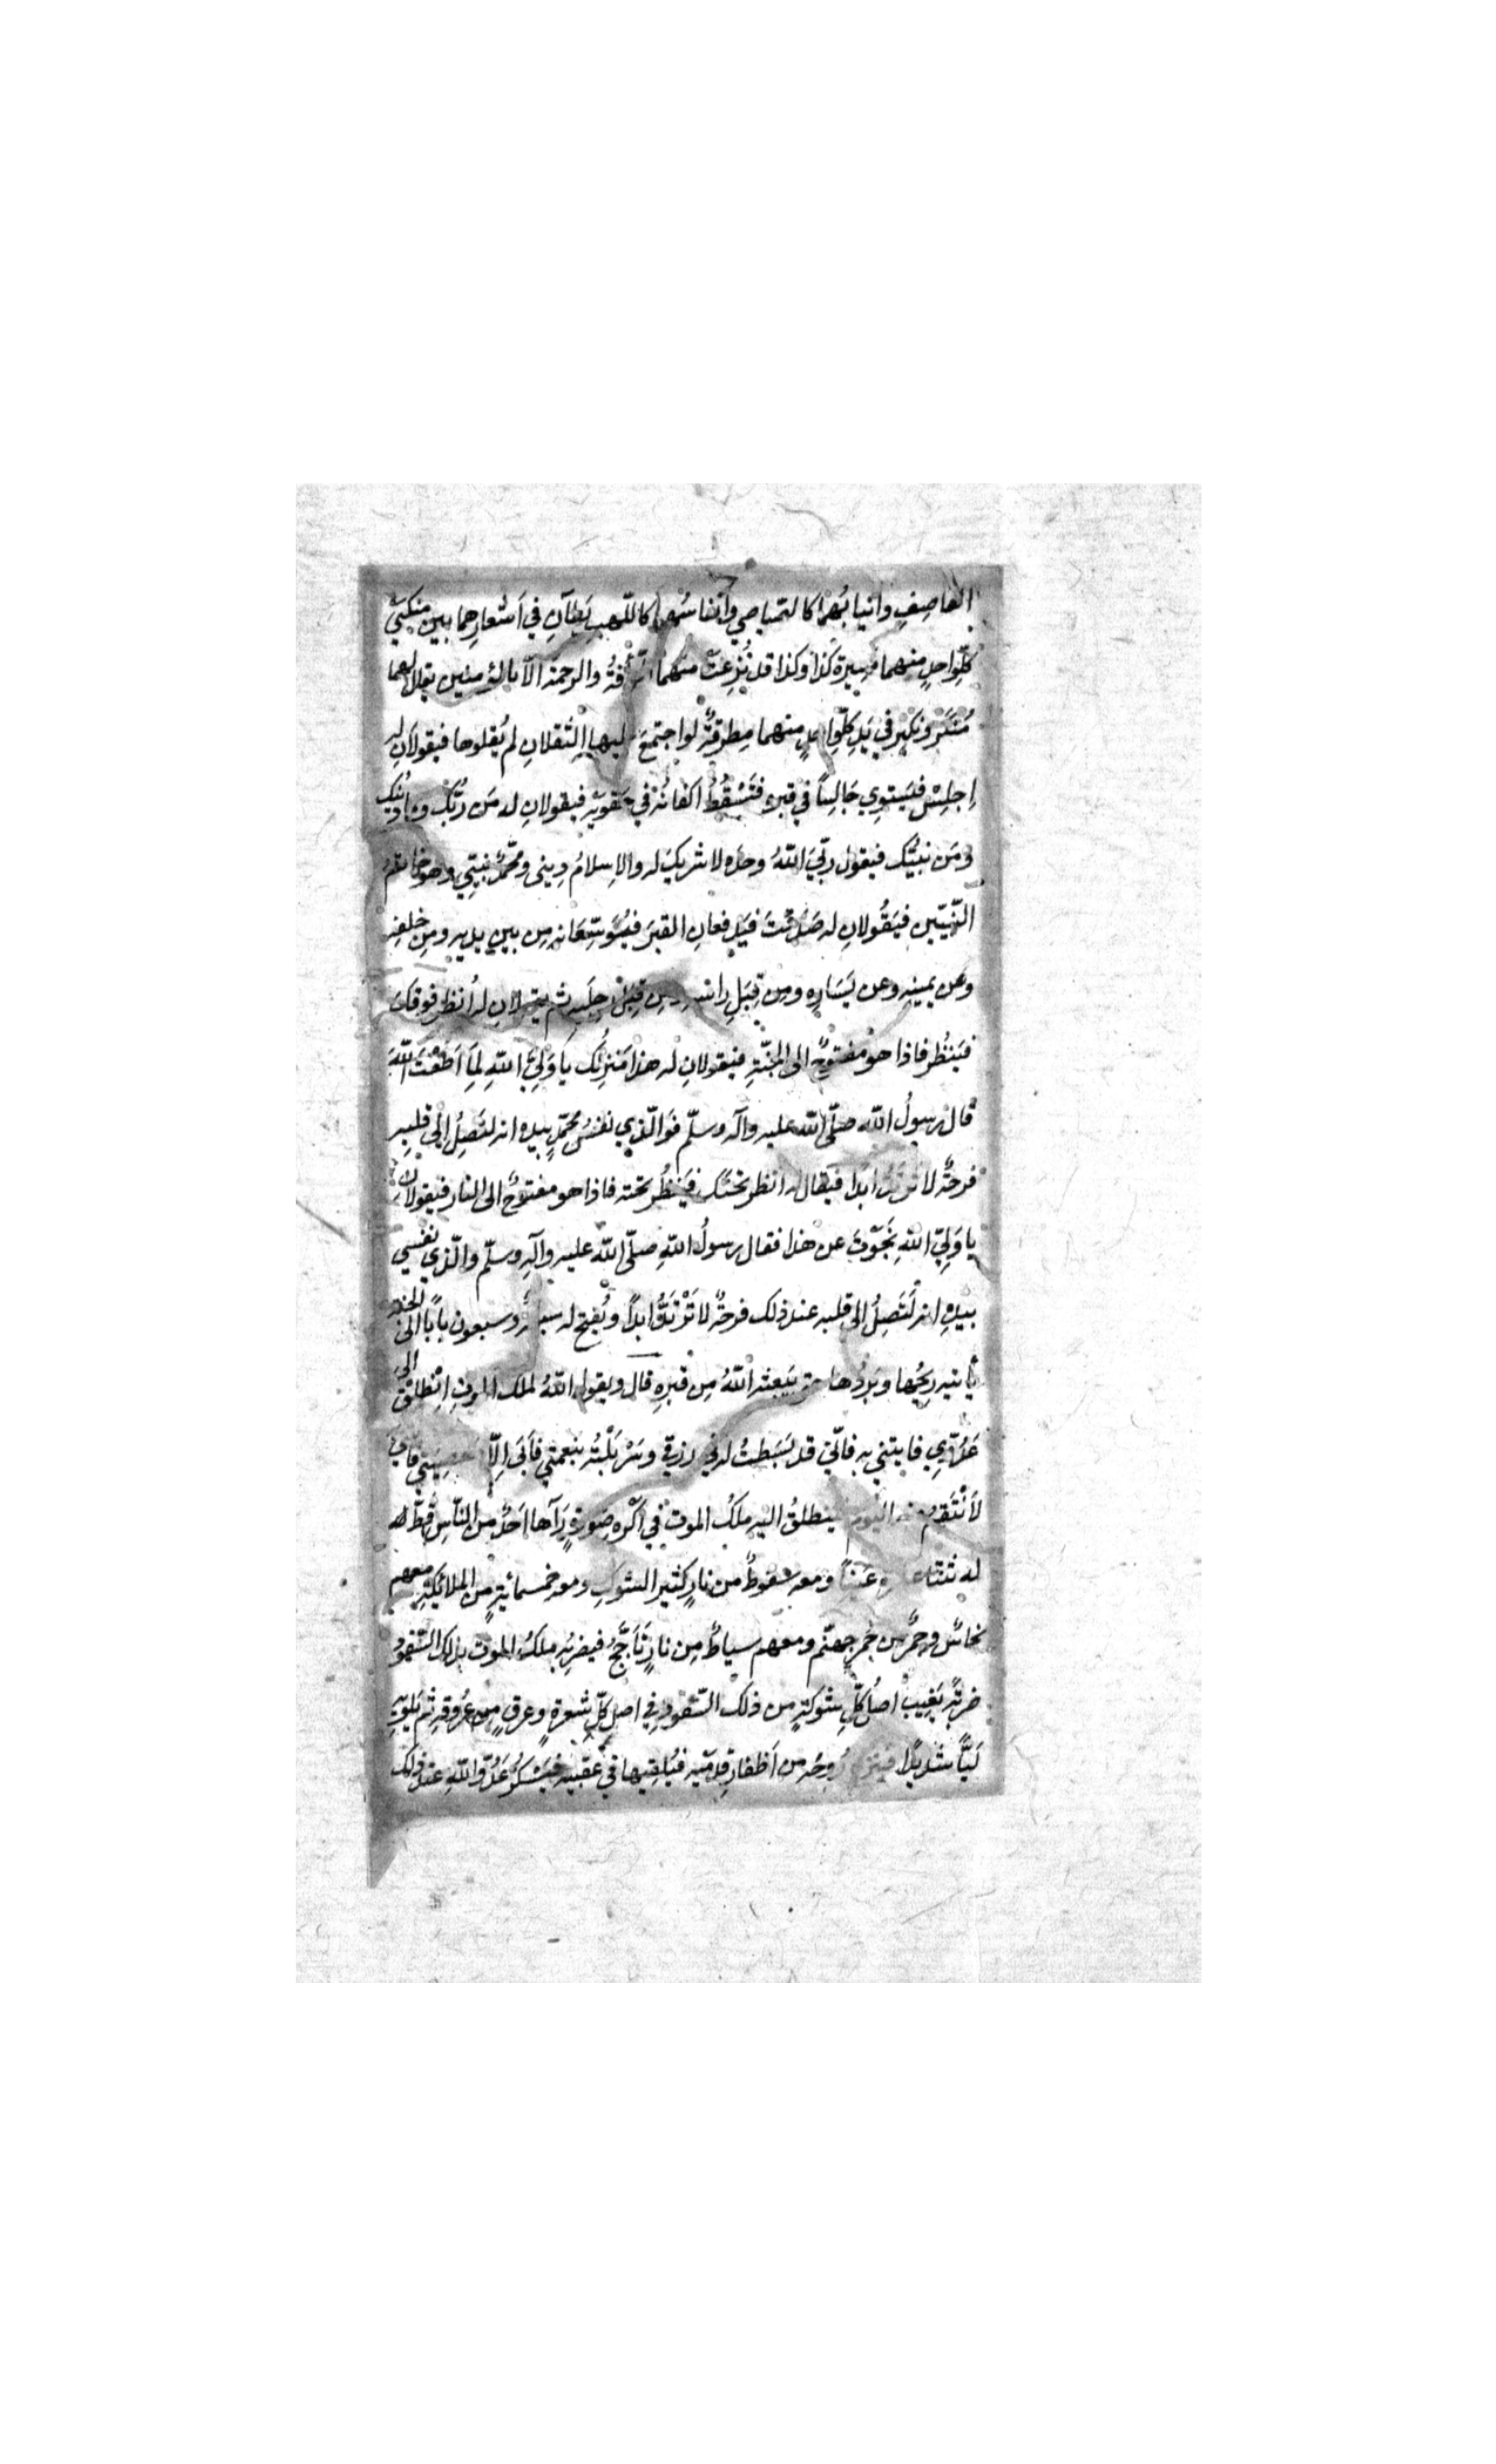 العاصِفِ وانيابُهما كالصّياصي وانفاسُهما كاللّهبِ يَطآنِ في اَشعارِهما بين منكبَيْ
كلِّ واحدٍ منهما مسيرةُ كذا وكذا قد نُزِعتْ منهما الرّأفةُ والرحمة الّا بالمؤمنين يقال لهما
مُنكَر ونكير في يَدِ كلِّ واحدٍ منهما مِطرقةٌ لو اجتمعَ عليها الثَّقَلانِ لم يُقِلوها فيقولانِ له
اِجلِسْ فيَستوِي جَالِسًا في قبره فتَسْقُطُ اكفانُهُ في حَقويْه فيقولانِ له مَن ربُّك وما دينُك
ومَن نبيُّك فيقول ربّيَ اللهُ وحدَه لا شريكَ له والاِسلامُ دِيني ومحمّدٌ نبيّي وهو خاتمُ
النّبيّين فيَقُولانِ له صَدَقْتَ فيَدفعانِ القبرَ فيُوَسِّعَانِه مِن بينِ يديهِ ومِن خلفِه
وعن يمينِه وعن يَسَارِه ومن قِبَلِ راسِه ومِن قِبَلِ رِجلَيهِ ثم يقولانِ له اُنظر فوقَك
فيَنظُر فاذا هو مفتوحٌ الى الجنّةِ فيقولانِ له هذا مَنزِلُك ياوَلِيَّ اللهِ لِمَا اَطَعْتَ اللهَ
قال رسولُ الله صلّى الله عليه وآله وسلّم فَوَالّذي نفسُ محمّدٍ بيده انه لتَصِلُ الى قلبِه
فرحةٌ لا تَرتَدُّ ابدًا فيقال له انظر تحتَك فيَنظُر تحته فاذا هو مفتوحٌ الى النار فيقولانِ
ياوَلِيَّ اللهِ نَجَوْتَ من هذا فقال رسولُ اللهِ صلّى الله عليه وآلِه وسلّم والّذي نفسي
بيدِهِ انه لَتَصِلُ الى قلبه عند ذلك فرحةٌ لا تَرْتَدُّ ابدًا ويُفتح له سبعةٌ وسبعون بابًا الى الجنّة
ياتيه رِيحُها وبَردُها حتى يَبعثه اللهُ مِن قبرِهِ قال ويقول اللهُ لملك الموتِ اِنْطلِقْ الى
عَدُوّي فايتني به فانّي قد بَسَطتُ له في رزقي وسَرْبَلْتُه بنعمتي فاَبَى اِلّا معصيَتي فايتني به
لَاَنْتَقِمُ منه اليومَ فينطلقُ اليه ملكُ الموت في اكْرَهِ صورةٍ رَآها احَدٌ من النّاس قَطّ له
ومعه سَفّودٌ من نارٍ كثير الشّوكِ ومعه خمسمائةٍ من الملائكةِ معهم
نحاسٌ وجمرٌ من جَمرِ جهنّم ومعهم سياطٌ مِن نارٍ تَاَجَّجُ فيضرِبُه ملكُ الموت بذلك السَّفود
ضربةً يَغِيب اصلُ كلِّ شوكةٍ من ذلك السَّفّود في اصلِ كلِّ شعرةٍ وعرقٍ مِن عُروقِه ثم يَلوِيه
لَيًّا شديدًا فينزع رُوحَه من اَظفارِ قدمَيه فيُلقِيها في عقبيه فيَسْكُرُ عَدُوُّ اللهِ عند ذلك